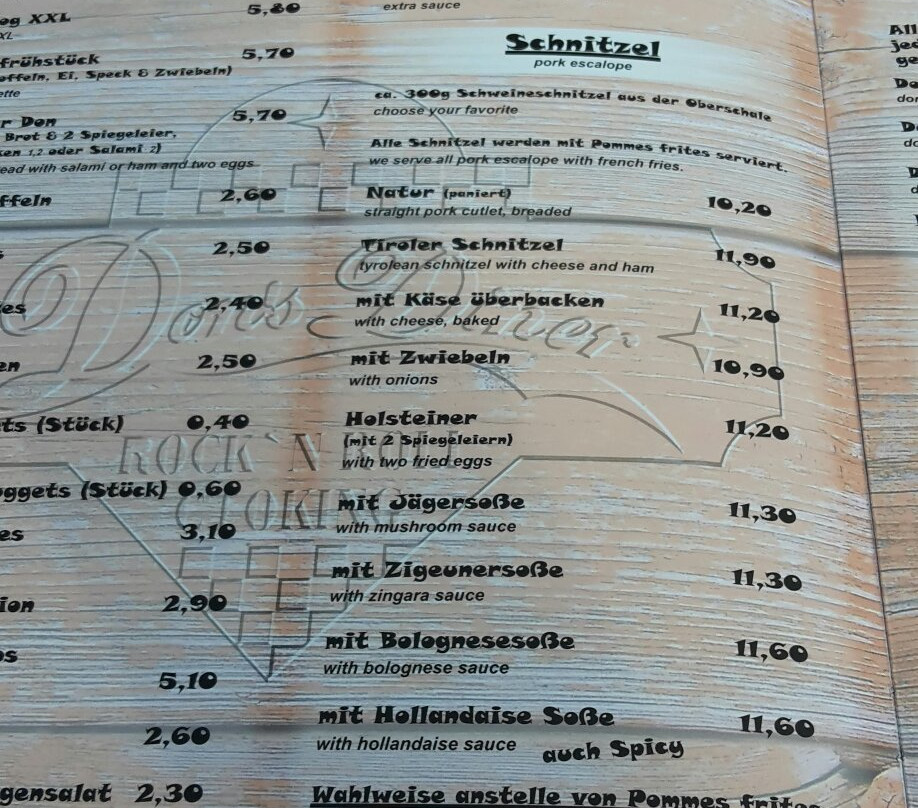 og XXL 5,80
XL
frühstück 5,70
offeln, Ei, Speck & Zwiebeln)
ette
r Don 5,70
Brot & 2 Spiegeleier,
ken 1,2 oder Salami 2)
ead with salami or ham and two eggs
ffeln 2,60
s 2,50
es 2,40
en 2,50
ts (Stück) 0,40
ggets (Stück) 0,60
es 3,10
ion 2,90
os
5,10
2,60
gensalat 2,30
extra sauce
Schnitzel
pork escalope
ca. 300g Schweineschnitzel aus der Oberschale
choose your favorite
Alle Schnitzel werden mit Pommes frites serviert.
we serve all pork escalope with french fries.
Natur (paniert) 10,20
straight pork cutlet, breaded
Tiroler Schnitzel 11,90
tyrolean schnitzel with cheese and ham
mit Käse überbacken 11,20
with cheese, baked
mit Zwiebeln 10,90
with onions
Holsteiner 11,20
(mit 2 Spiegeleiern)
with two fried eggs
mit Jägersoße 11,30
with mushroom sauce
mit Zigeunersoße 11,30
with zingara sauce
mit Bolognesesoße 11,60
with bolognese sauce
mit Hollandaise Soße 11,60
with hollandaise sauce auch Spicy
Wahlweise anstelle von Pommes frites
Don's Diner
ROCK`N ROLL
All
jed
ge
Do
don
D
do
D
d